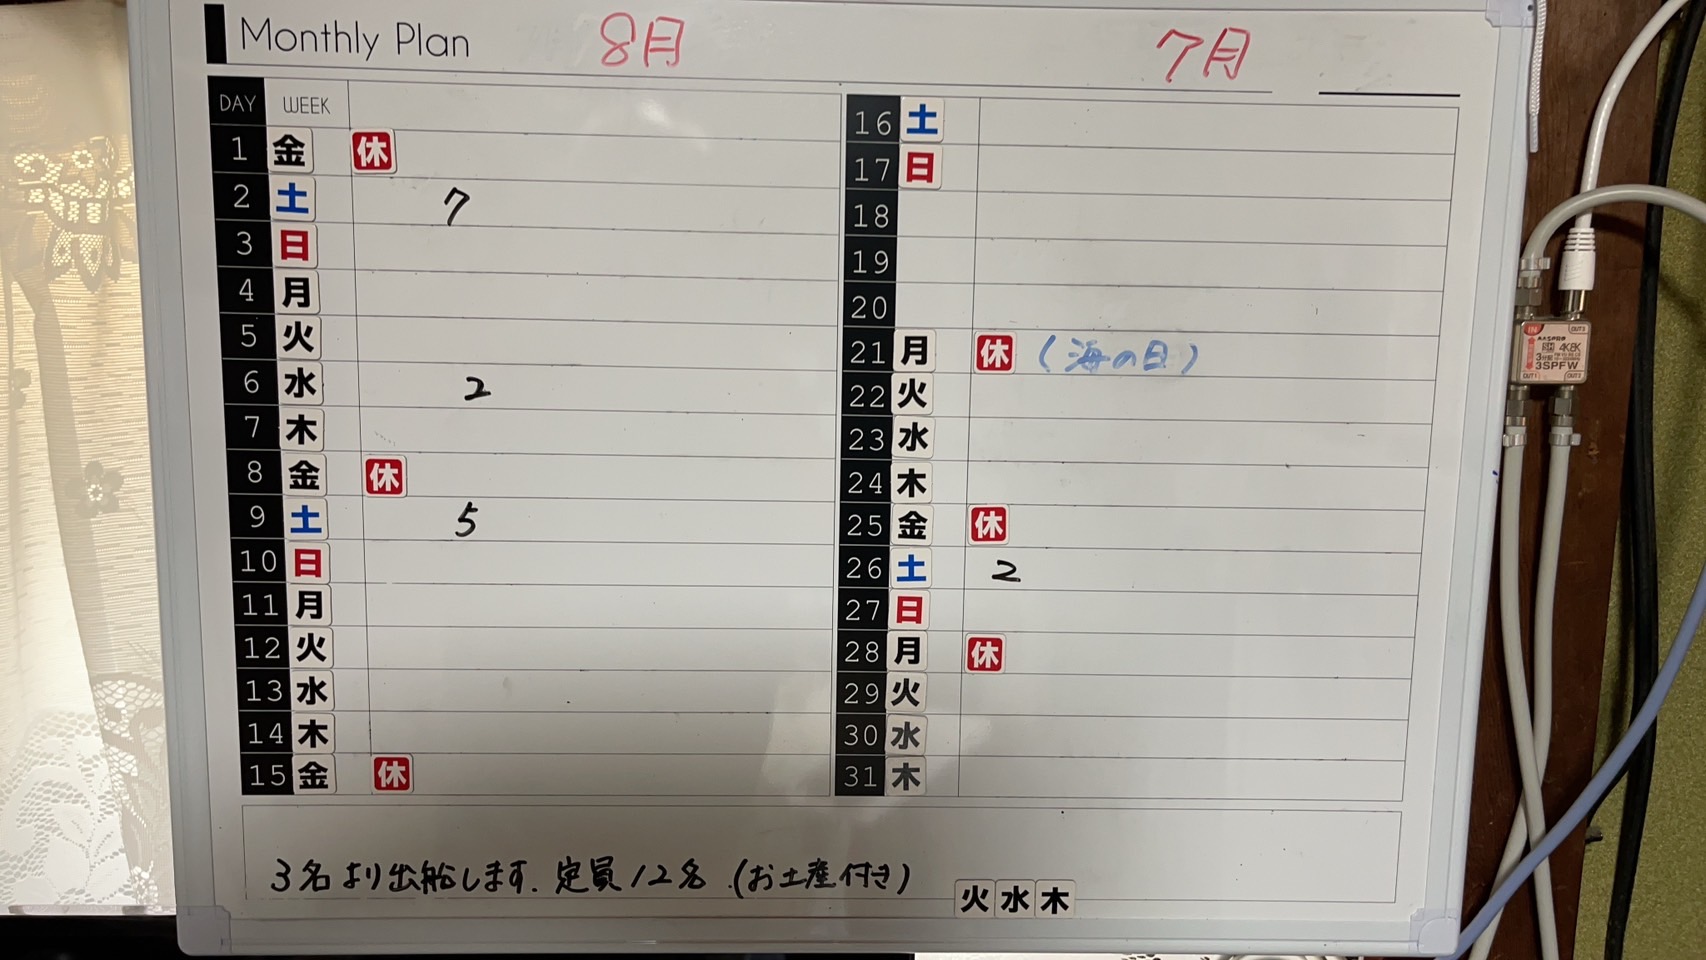 Monthly Plan 8月 7月
DAY WEEK
1 金 休
2 土 7
3 日
4 月
5 火
6 水 2
7 木
8 金 休
9 土 5
10 日
11 月
12 火
13 水
14 木
15 金 休
16 土
17 日
18
19
20
21 月 休 (海の日)
22 火
23 水
24 木
25 金 休
26 土 2
27 日
28 月 休
29 火
30 水
31 木
3名より出船します. 定員12名 (お土産付き)
火 水 木
IN OUT3
4K8K
3分配
3SPFW
OUT1 OUT2